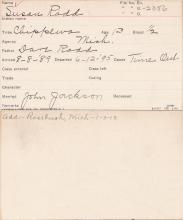 Name
File No. En.
Susan Rodd
" " D-2386
Indian name
" " O
Tribe Chippewa Age 13 Blood 1/2
Agency Mich.
Father Dave Rodd
Arrived 8-8-89 Departed 6-12-95 Cause Time Out
Class entered Class left
Trade Outing
Character
Married John Jackson Deceased
Remarks
Add-Rosebush, Mich-1-3-13